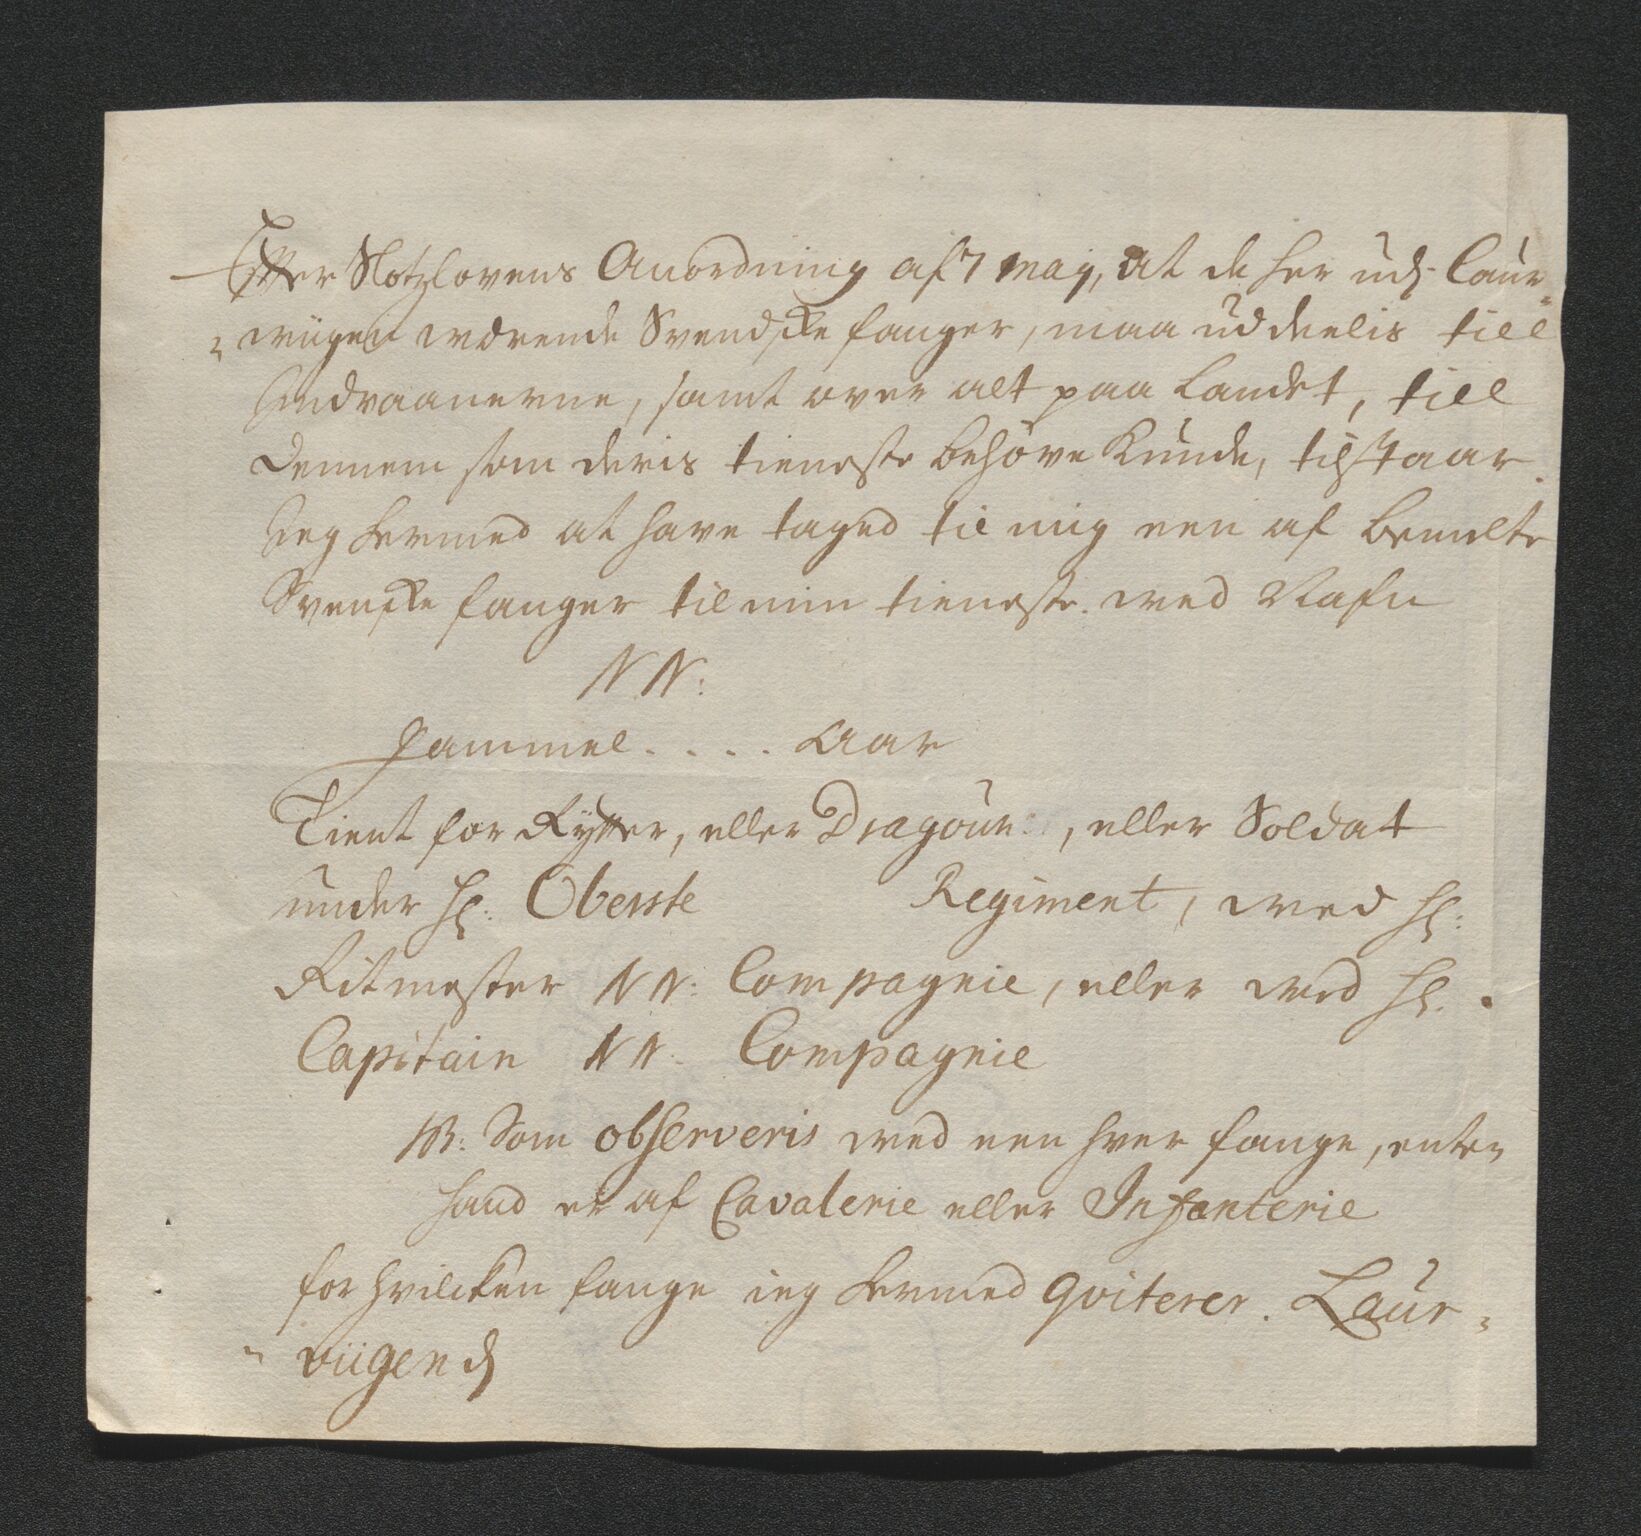 Efter Slotzlovens Anordning af 7 may, at de her udj Laur-
wiigen værende Svendske fanger, maa uddeelis till
Indvaanerne, samt over alt paa Landet, till
dennem som deris tieneste behöve kunde, tilstaar
Jeg hermed at have taged til mig een af bemelte
Svenske fanger til min tieneste. ved Nafn
NN:
Gammel . . . . Aar
Tient for Rytter, eller Dragoun, eller Soldat
under Hr: Oberste Regiment, ved Hr:
Ritmester NN: Compagnie, eller ved Hr.
Capitain NN. Compagnie
NB: Som observeris ved een hver fange, enten
hand er af Cavalerie eller Infanterie
for hvilcken fange ieg hermed qviterer. Laur-
viigen d